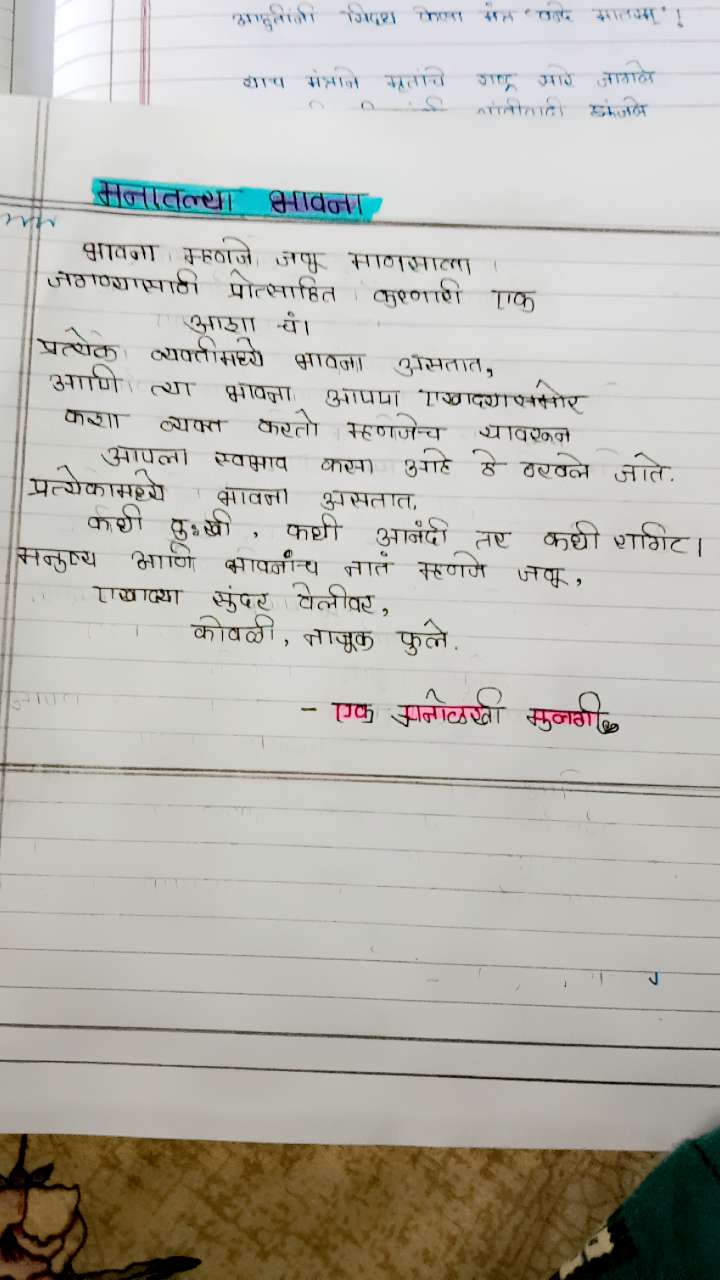 मंत्र "वंदे मातरम्" !
याच मंत्राने मृतांचे राष्ट्र सारे जागले
मनातल्या भावना
भावना म्हणजे जणू माणसाला
जगण्यासाठी प्रोत्साहित करणारी एक
आशा चं।
प्रत्येक व्यक्तीमध्ये भावना असतात,
आणि त्या भावना आपण एखाद्यासमोर
कशा व्यक्त करतो म्हणजेच यावरून
आपला स्वभाव कसा आहे हे ठरवले जाते.
प्रत्येकामध्ये भावना असतात.
कधी दुःखी, कधी आनंदी तर कधी रागिट।
मनुष्य आणि भावनांच नातं म्हणजे जणू,
एखाद्या सुंदर वेलीवर,
कोवळी, नाजूक फुले.
- एक अनोळखी मुलगी